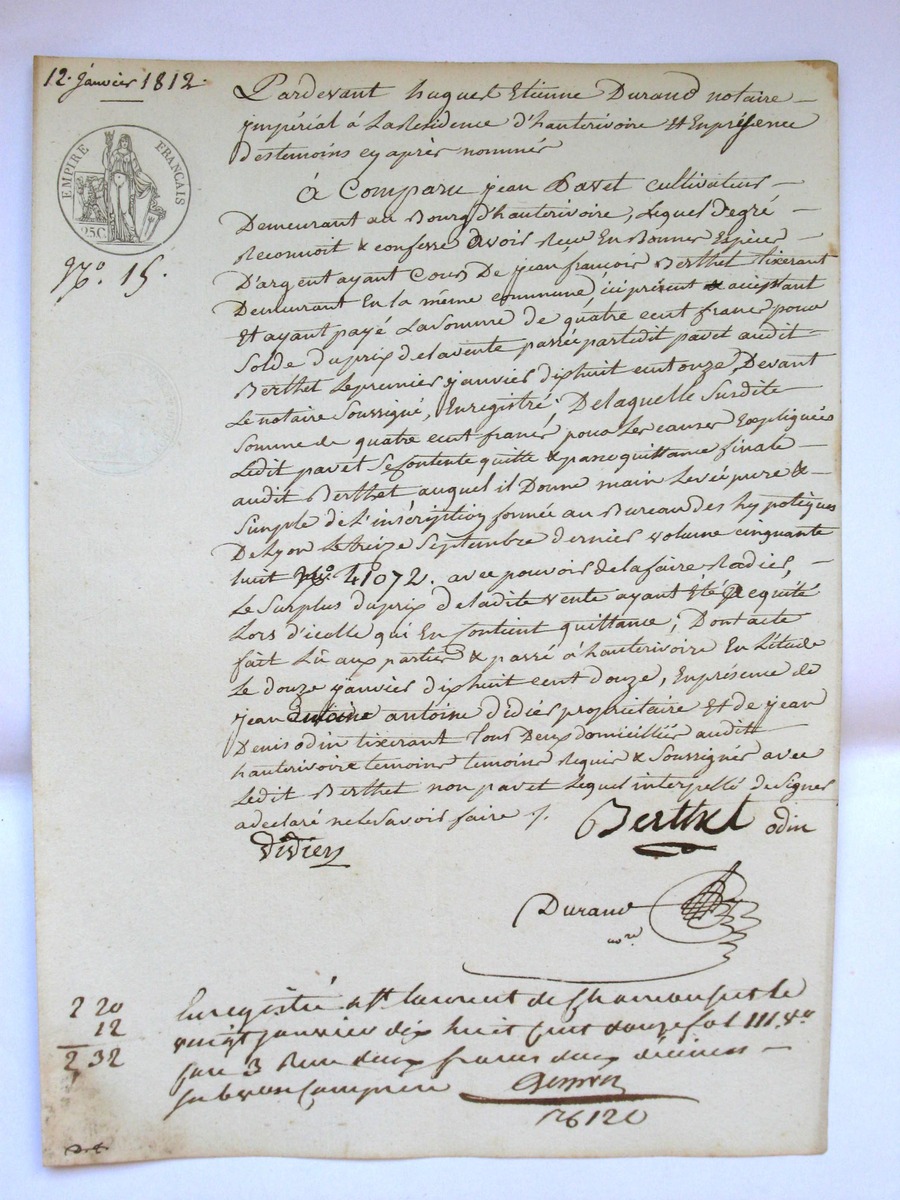 12. Janvier 1812.
EMPIRE FRANÇAIS
25C.
N.º 15.
Pardevant hugues Etienne Durand notaire
jmpérial à La Residence d'hauterivoire Et En présence
des temoins cy après nommés
à Comparu jean Pavet cultivateur
Demeurant au Bourg d'hauterivoire, Lequel de gré
Reconnoit & confesse avoir Reçu En Bonnes Espèces
D'argent ayant Cours De jean françois Berthet tixerant
Demeurant En la même commune, ici présent & acceptant
Et ayant payé La somme de quatre cent francs pour
Solde du prix de la vente passée par Ledit pavet audit
Berthet Le premier janvier dix huit cent onze, Devant
Le notaire Soussigné, Enregistré; De laquelle Susdite
Somme de quatre cent francs, pour Les causes Expliquées
Ledit pavet Se Contente quitte & passe quittance finale
audit Berthet auquel il Donne main Levée pure &
Simple de L'inscription formée au Bureau des hypoteques
De Lyon Le treize Septembre dernier volume cinquante
huit N.º 41072. avec pouvoir de la faire Radier,
Le Surplus du prix de la dite vente ayant Eté acquité
Lors d'icelle qui En Contient quittance; Dont acte
fait Lû aux parties & passé à hauterivoire En L'étude
Le douze janvier dix huit cent douze, En présence de
jean antoine didier propriétaire et de jean
Denis odin tixerant tous Deux domiciliés audit
hauterivoire temoins temoins Requis & Soussignés avec
Ledit Berthet non pavet Lequel interpellé de Signer
a déclaré ne le Savoir faire /.
Berthet odin
Didier
Durand
nre
2 20
12
2 32
Enregistré à St. laurent de Chamousset le
vingt janvier dix huit cent douze fol 111. vo
Case 3 Reçu deux francs deux décimes
Subvon Comprise